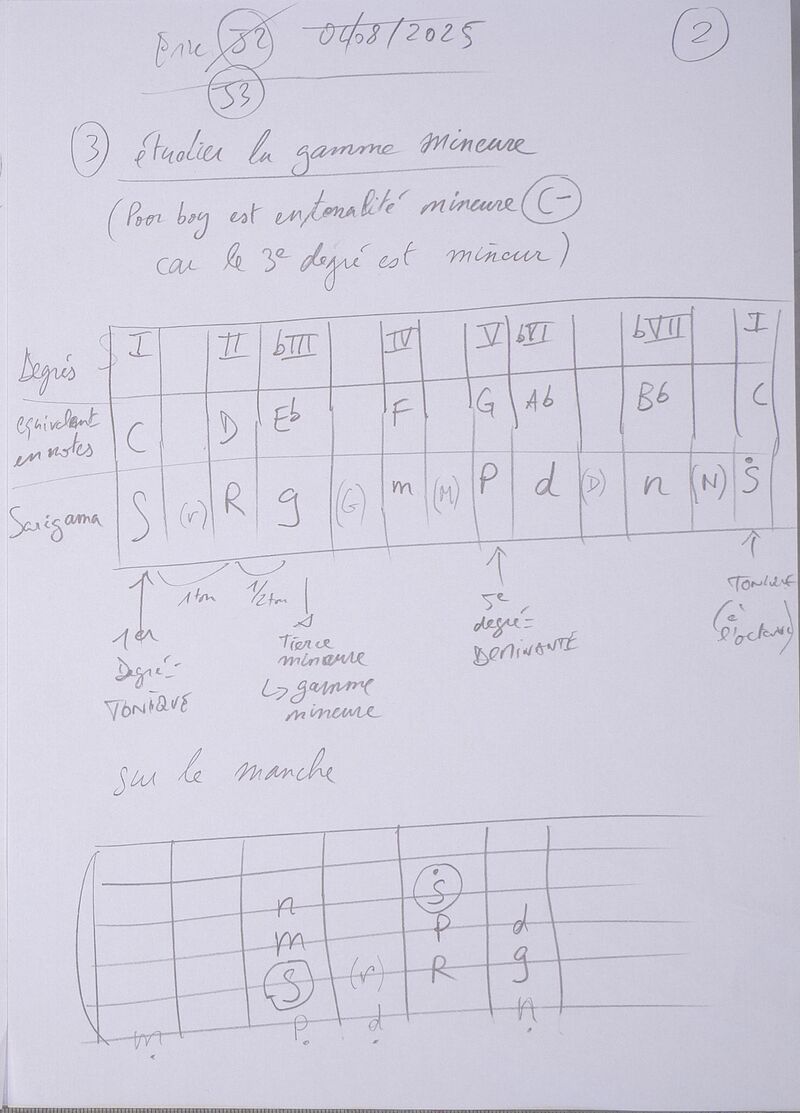 Eric S2 04/08/2025 2
S3
3 étudier la gamme mineure
(Poor boy est en tonalité mineure C-
car le 3e degré est mineur)
Degrés I II bIII IV V bVI bVII I
équivalent en notes C D Eb F G Ab Bb C
Sarigama S (r) R g (G) m (M) P d (D) n (N) Ṡ
1 ton 1/2 ton
1er
Degré =
TONIQUE
Tierce
mineure
↳ gamme
mineure
5e
degré =
DOMINANTE
TONIQUE
(à
l'octave)
sur le manche
Ṡ
n P d
m R g
S (r)
ṃ P̣ ḍ ṇ